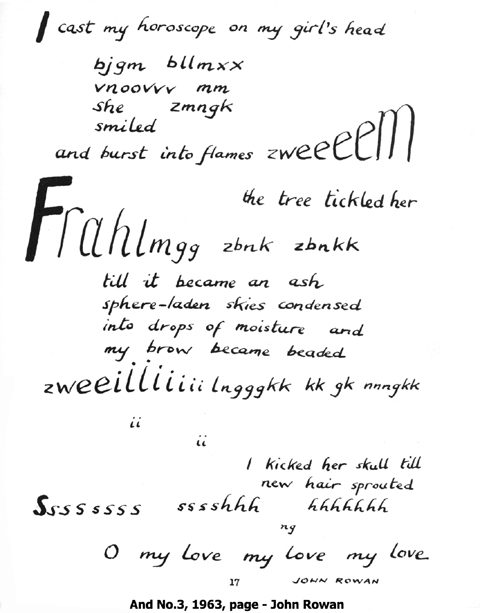 I cast my horoscope on my girl's head
bjgm bllmxx
vnoovvv mm
she zmngk
smiled
and burst into flames zweeeem
the tree tickled her
Frahlmgg zbnk zbnkk
till it became an ash
sphere-laden skies condensed
into drops of moisture and
my brow became beaded
zweeilliiiiii lngggkk kk gk nnngkk
ii
ii
I kicked her skull till
new hair sprouted
Ssssssss sssshhh hhhhhhh
ng
O my love my love my love
17 JOHN ROWAN
And No.3, 1963, page - John Rowan